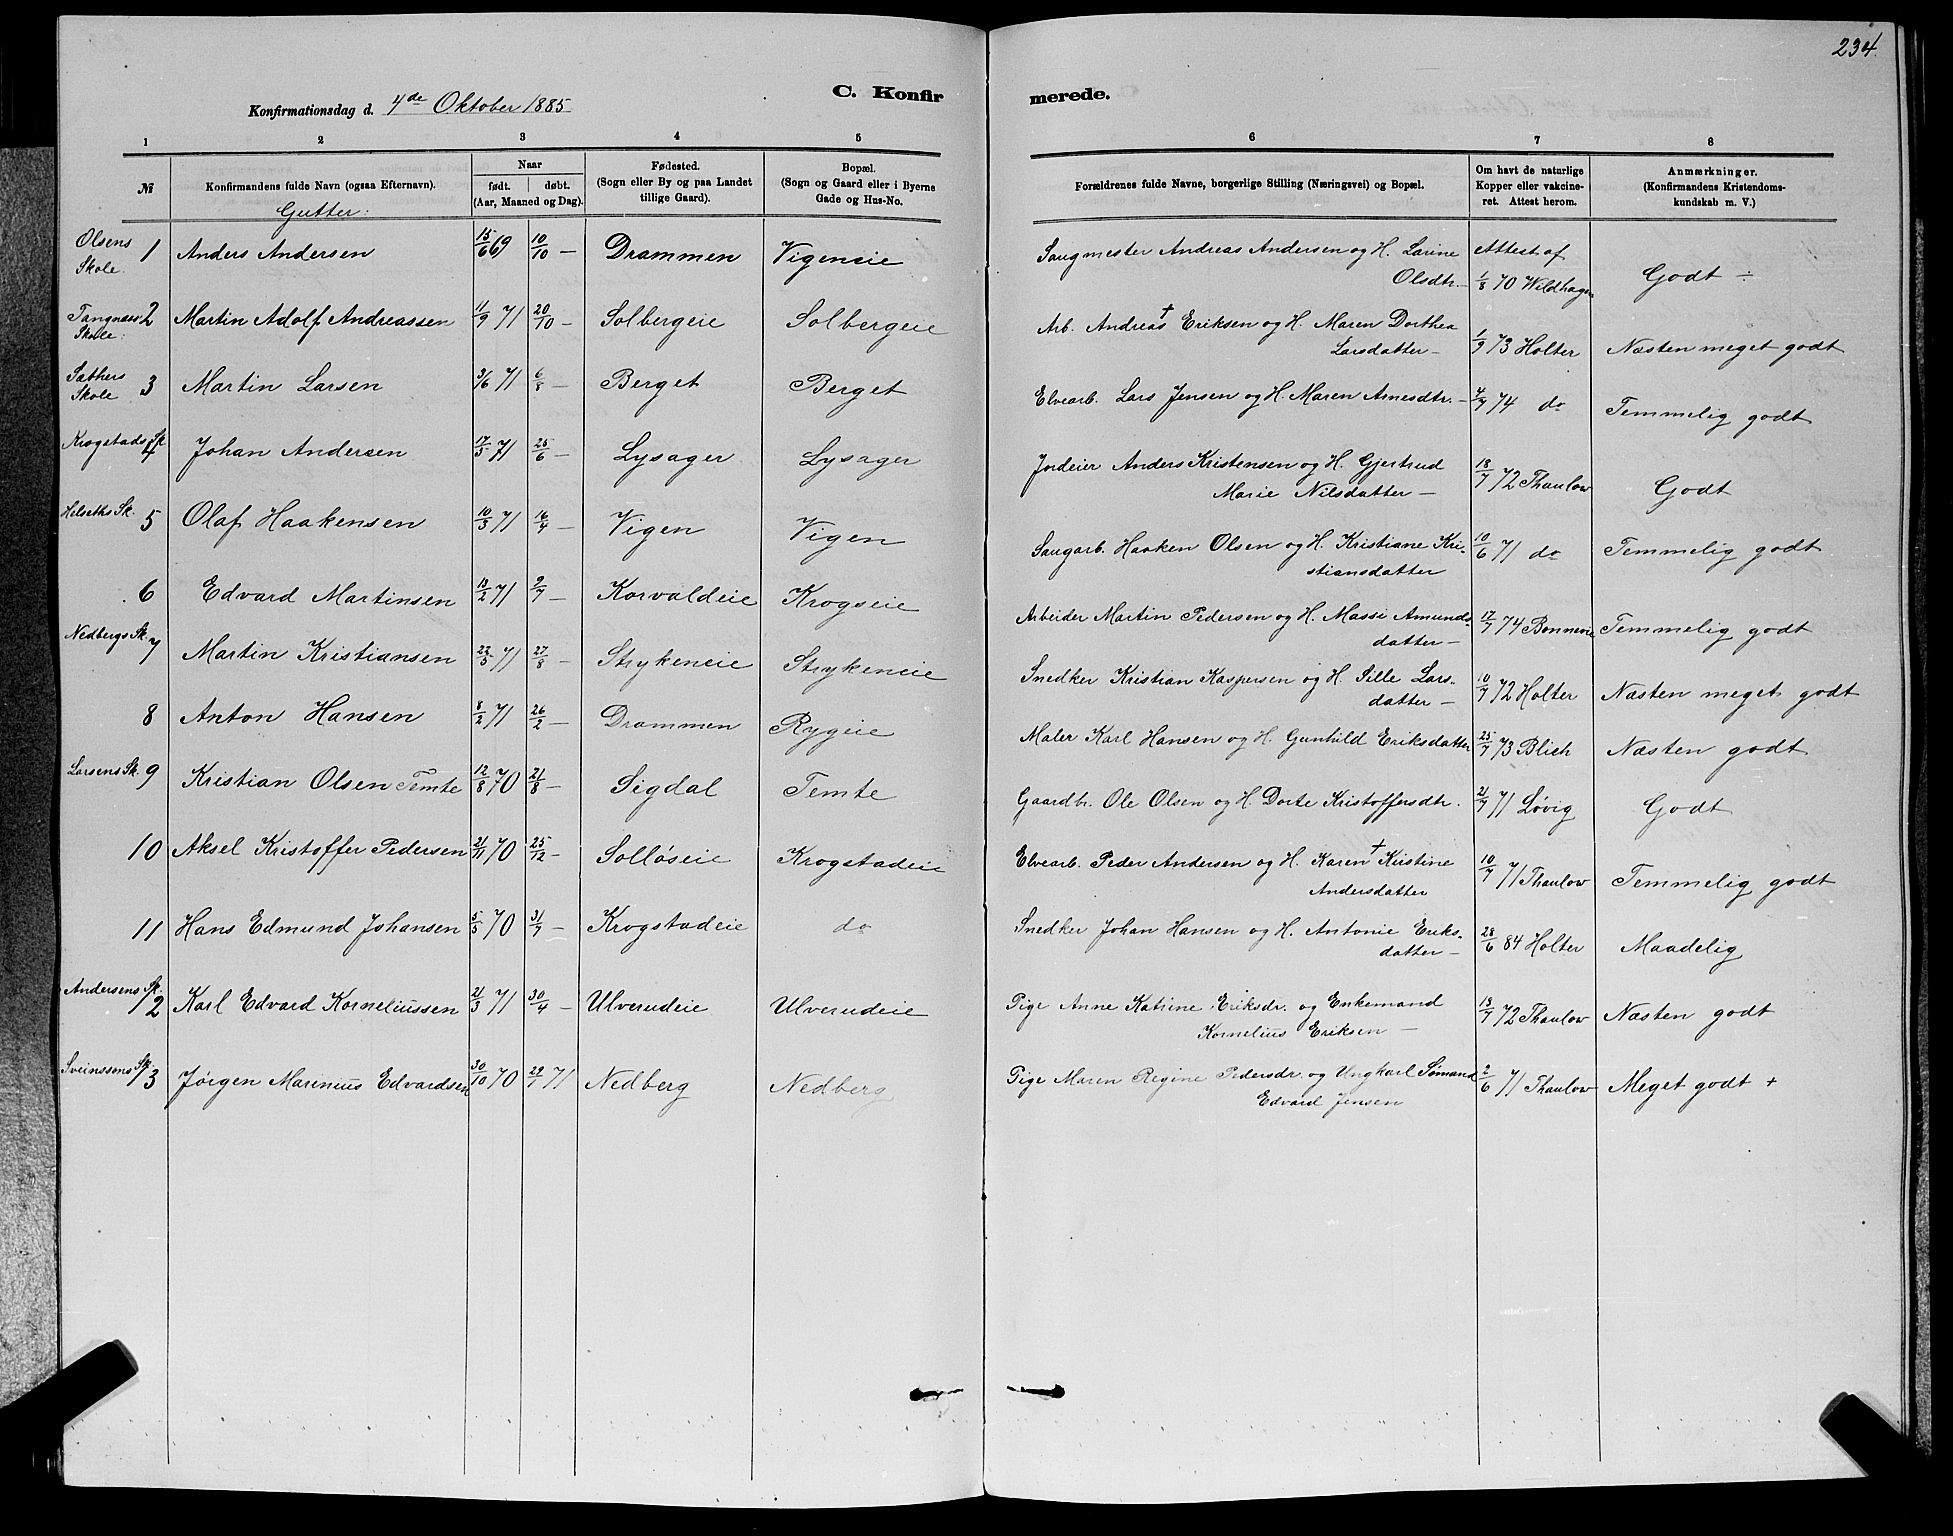 234.
C. Konfirmerede.
Konfirmationsdag d. 4de Oktober 1885
1 2 3 4 5 6 7 8
№ | Konfirmandens fulde Navn (ogsaa Efternavn). | Naar født. døbt. (Aar, Maaned og Dag). | Fødested. (Sogn eller By og paa Landet tillige Gaard). | Bopæl. (Sogn og Gaard eller i Byerne Gade og Hus-No. | Forældrenes fulde Navne, borgerlige Stilling (Næringsvei) og Bopæl. | Om havt de naturlige Kopper eller vakcineret. Attest herom. | Anmærkninger. (Konfirmandens Kristendomskundskab m. V.)
Gutter:
Olsens Skole. 1 Anders Andersen 15/6 69 10/10 — Drammen Vigeneie Saugmester Andreas Andersen og H. Lavine Olsdtr. — Attest af 1/8 70 Wildhagen Godt ÷
Tangnæs Skole: 2 Martin Adolf Andreassen 11/9 71 20/10 — Solbergeie Solbergeie Arb. Andreas † Eriksen og H. Maren Dorthea Larsdatter — 1/9 73 Holter Næsten meget godt
Sæthers Skole 3 Martin Larsen 3/6 71 6/8 — Berget Berget Elvearb. Lars Jensen og H. Maren Arnesdtr. — 4/7 74 do Temmelig godt
Krogstads Sk. 4 Johan Andersen 17/5 71 25/6 — Lysager Lysager Jordeier Anders Kristensen og H. Gjertrud Marie Nilsdatter — 18/7 72 Thaulow Godt
Helseths Sk. 5 Olaf Haakensen 10/3 71 16/4 — Vigen Vigen Saugarb. Haaken Olsen og H. Kristiane Kristiansdatter 10/6 71 do Temmelig godt
6 Edvard Martinsen 13/2 71 9/7 — Korvaldeie Krogseie Arbeider Martin Pedersen og H. Massi Amundsdatter — 17/7 74 Bonnevie Temmelig godt
Nedbergs Sk. 7 Martin Kristiansen 22/5 71 27/8 — Strykeneie Strykeneie Snedker Kristian Kaspersen og H. Sille Larsdatter — 10/7 72 Holter Næsten meget godt
8 Anton Hansen 8/2 71 26/2 — Drammen Rygeie Maler Karl Hansen og H. Gunhild Eriksdatter 25/7 73 Blich Næsten godt
Larsens Sk. 9 Kristian Olsen Temte 12/8 70 21/8 — Sigdal Temte Gaardbr. Ole Olsen og H. Dorte Kristoffersdtr. 21/7 71 Løvig Godt
10 Aksel Kristoffer Pedersen 21/11 70 25/12 — Solløseie Krogstadeie Elvearb. Peder Andersen og H. Karen † Kristine Andersdatter 10/7 71 Thaulow Temmelig godt
11 Hans Edmund Johansen 5/5 70 31/7 — Krogstadeie do Snedker Johan Hansen og H. Antonie Eriksdatter — 28/6 84 Holter Maadelig
Andersens Sk. 12 Karl Edvard Korneliussen 21/3 71 30/4 — Ulverudeie Ulverudeie Pige Anne Katrine Eriksdr. og Enkemand Kornelius Eriksen — 18/7 72 Thaulow Næsten godt
Sveinssens Sk. 13 Jørgen Marinius Edvardsen 30/10 70 29/1 71 Nedberg Nedberg Pige Maren Regine Pedersdr. og Ungkarl Sømand Edvard Jensen 2/6 71 Thaulow Meget godt +